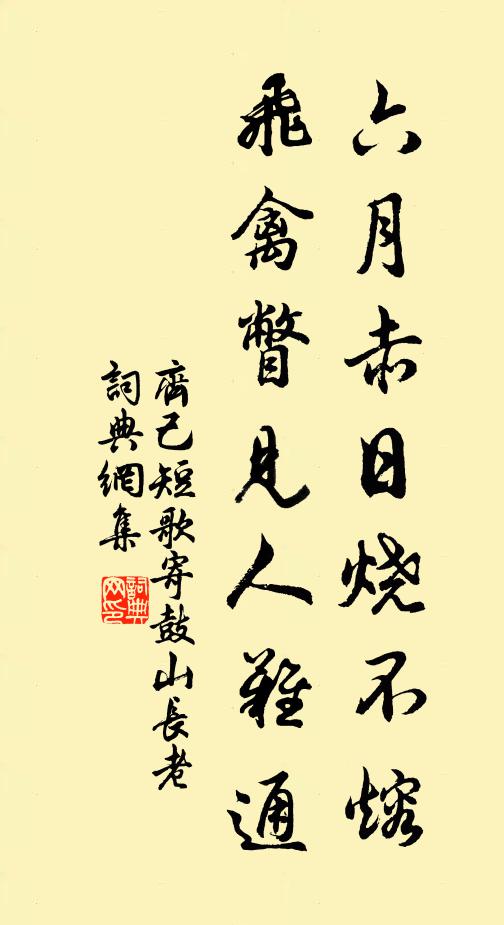 六月赤日烧不熔
飛禽瞥見人難通
齊己短歌寄鼓山長老
詞典網集